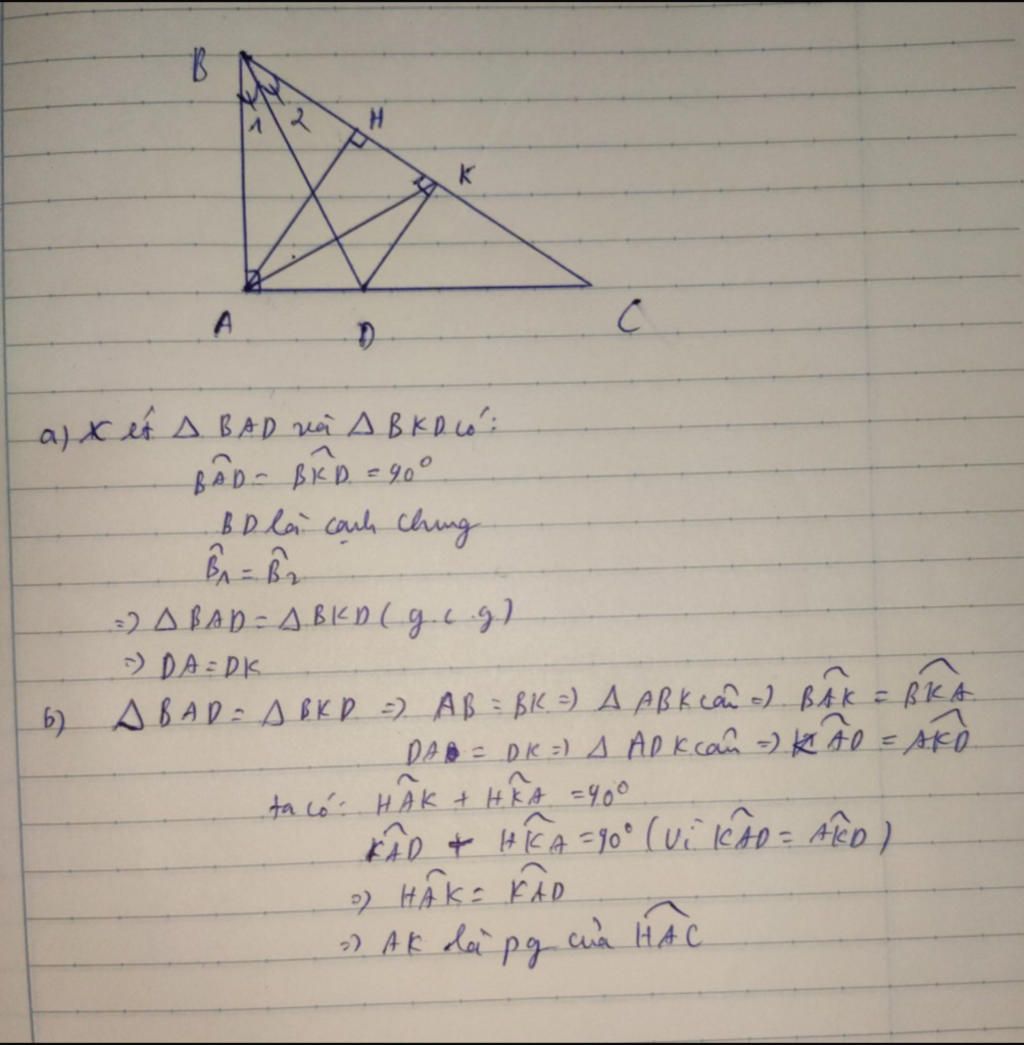 B
1 2
H
K
A
D
C
a) Xét Δ BAD và Δ BKD có:
BÂD = BK̂D = 90°
BD là cạnh chung
B̂₁ = B̂₂
=> Δ BAD = Δ BKD ( g.c.g)
=> DA = DK
b) Δ BAD = Δ BKD => AB = BK => Δ ABK cân => BÂK = BK̂A
DA = DK => Δ ADK cân => KÂD = AK̂D
ta có: HÂK + HK̂A = 90°
KÂD + HK̂A = 90° (Vì KÂD = AK̂D)
=> HÂK = KÂD
=> AK là pg của HÂC